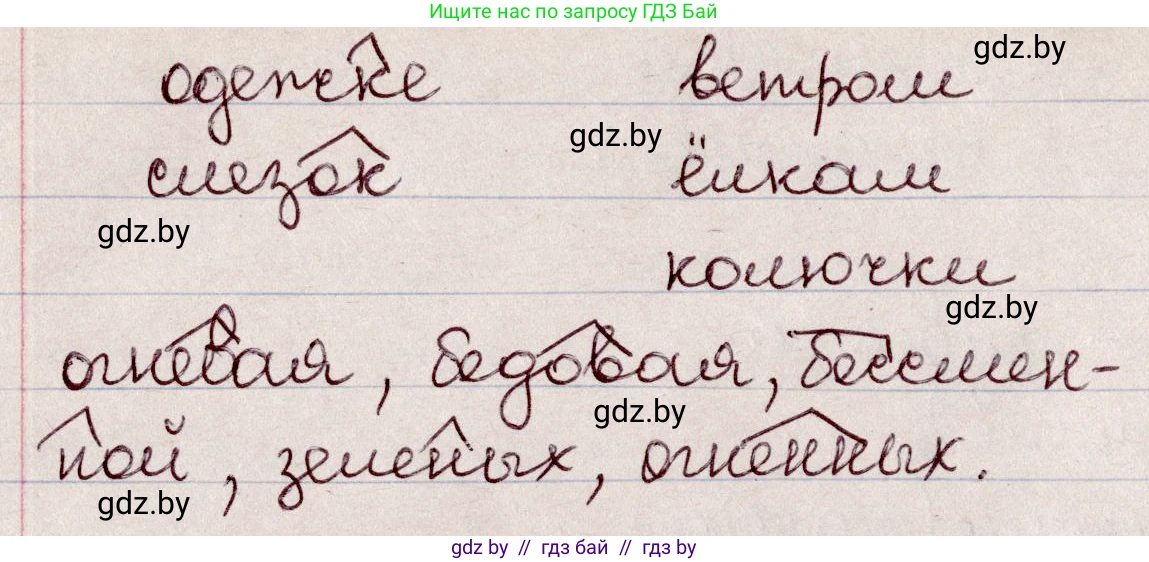 Ищите нас по запросу ГДЗ Бай
одежке ветром gdz.by
слезок gdz.by ёлкам
gdz.by
колючки
gdz.by
огневая, бедовая, бессмен-
gdz.by
ной, зеленых, огненных.
gdz.by
gdz by // гдз бай // гдз by